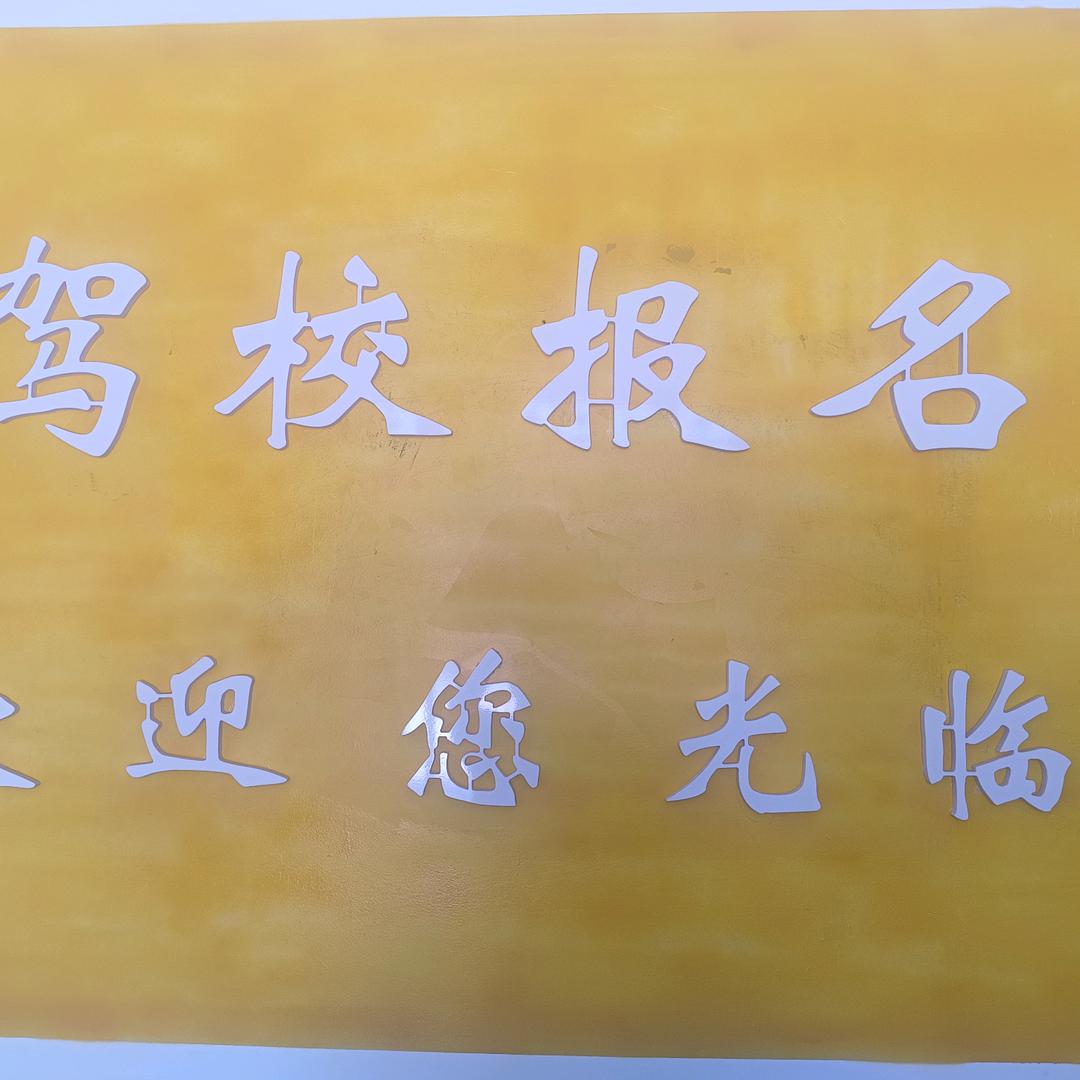 驾校报名
迎您光临